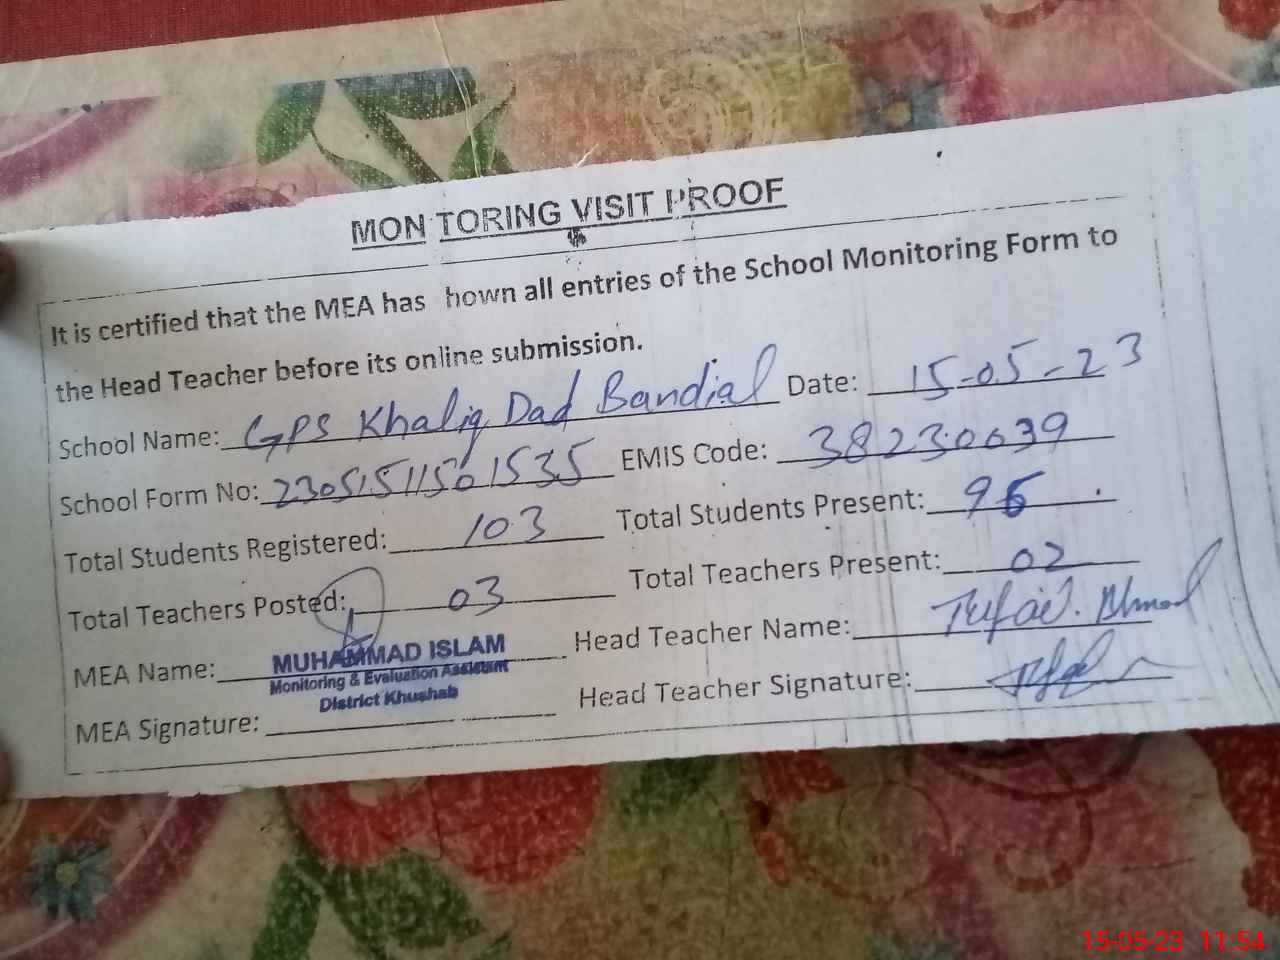 MONITORING VISIT PROOF
It is certified that the MEA has hown all entries of the School Monitoring Form to
the Head Teacher before its online submission.
School Name: GPS Khaliq Dad Bandial Date: 15-05-23
School Form No: 23051511501535 EMIS Code: 38230039
Total Students Registered: 103 Total Students Present: 96
Total Teachers Posted: 03 Total Teachers Present: 02
MEA Name: MUHAMMAD ISLAM Head Teacher Name: Tufail. Ahmad
Monitoring & Evaluation Assistant
District Khushab
MEA Signature: Head Teacher Signature:
15-05-23 11:54